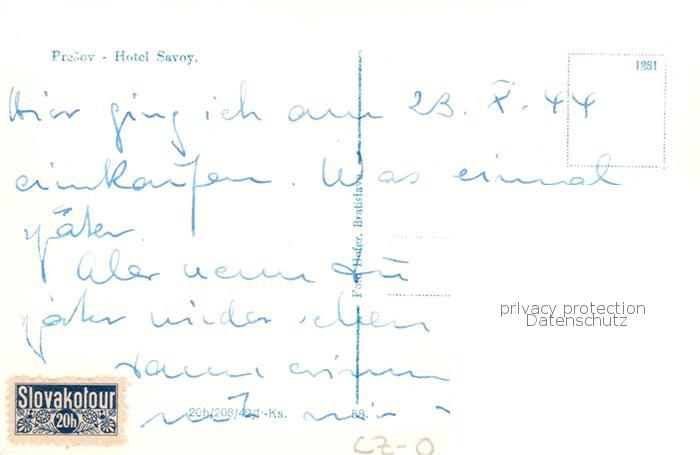 Prešov - Hotel Savoy.
1281
Hier ging ich am 23. X. 44
einkaufen. Was einmal
später.
Aber wenn du
später wieder
dann
mir
Foto Hofer, Bratislava.
privacy protection
Datenschutz
Slovakotour
20h
-Ks. 58.
CZ-O